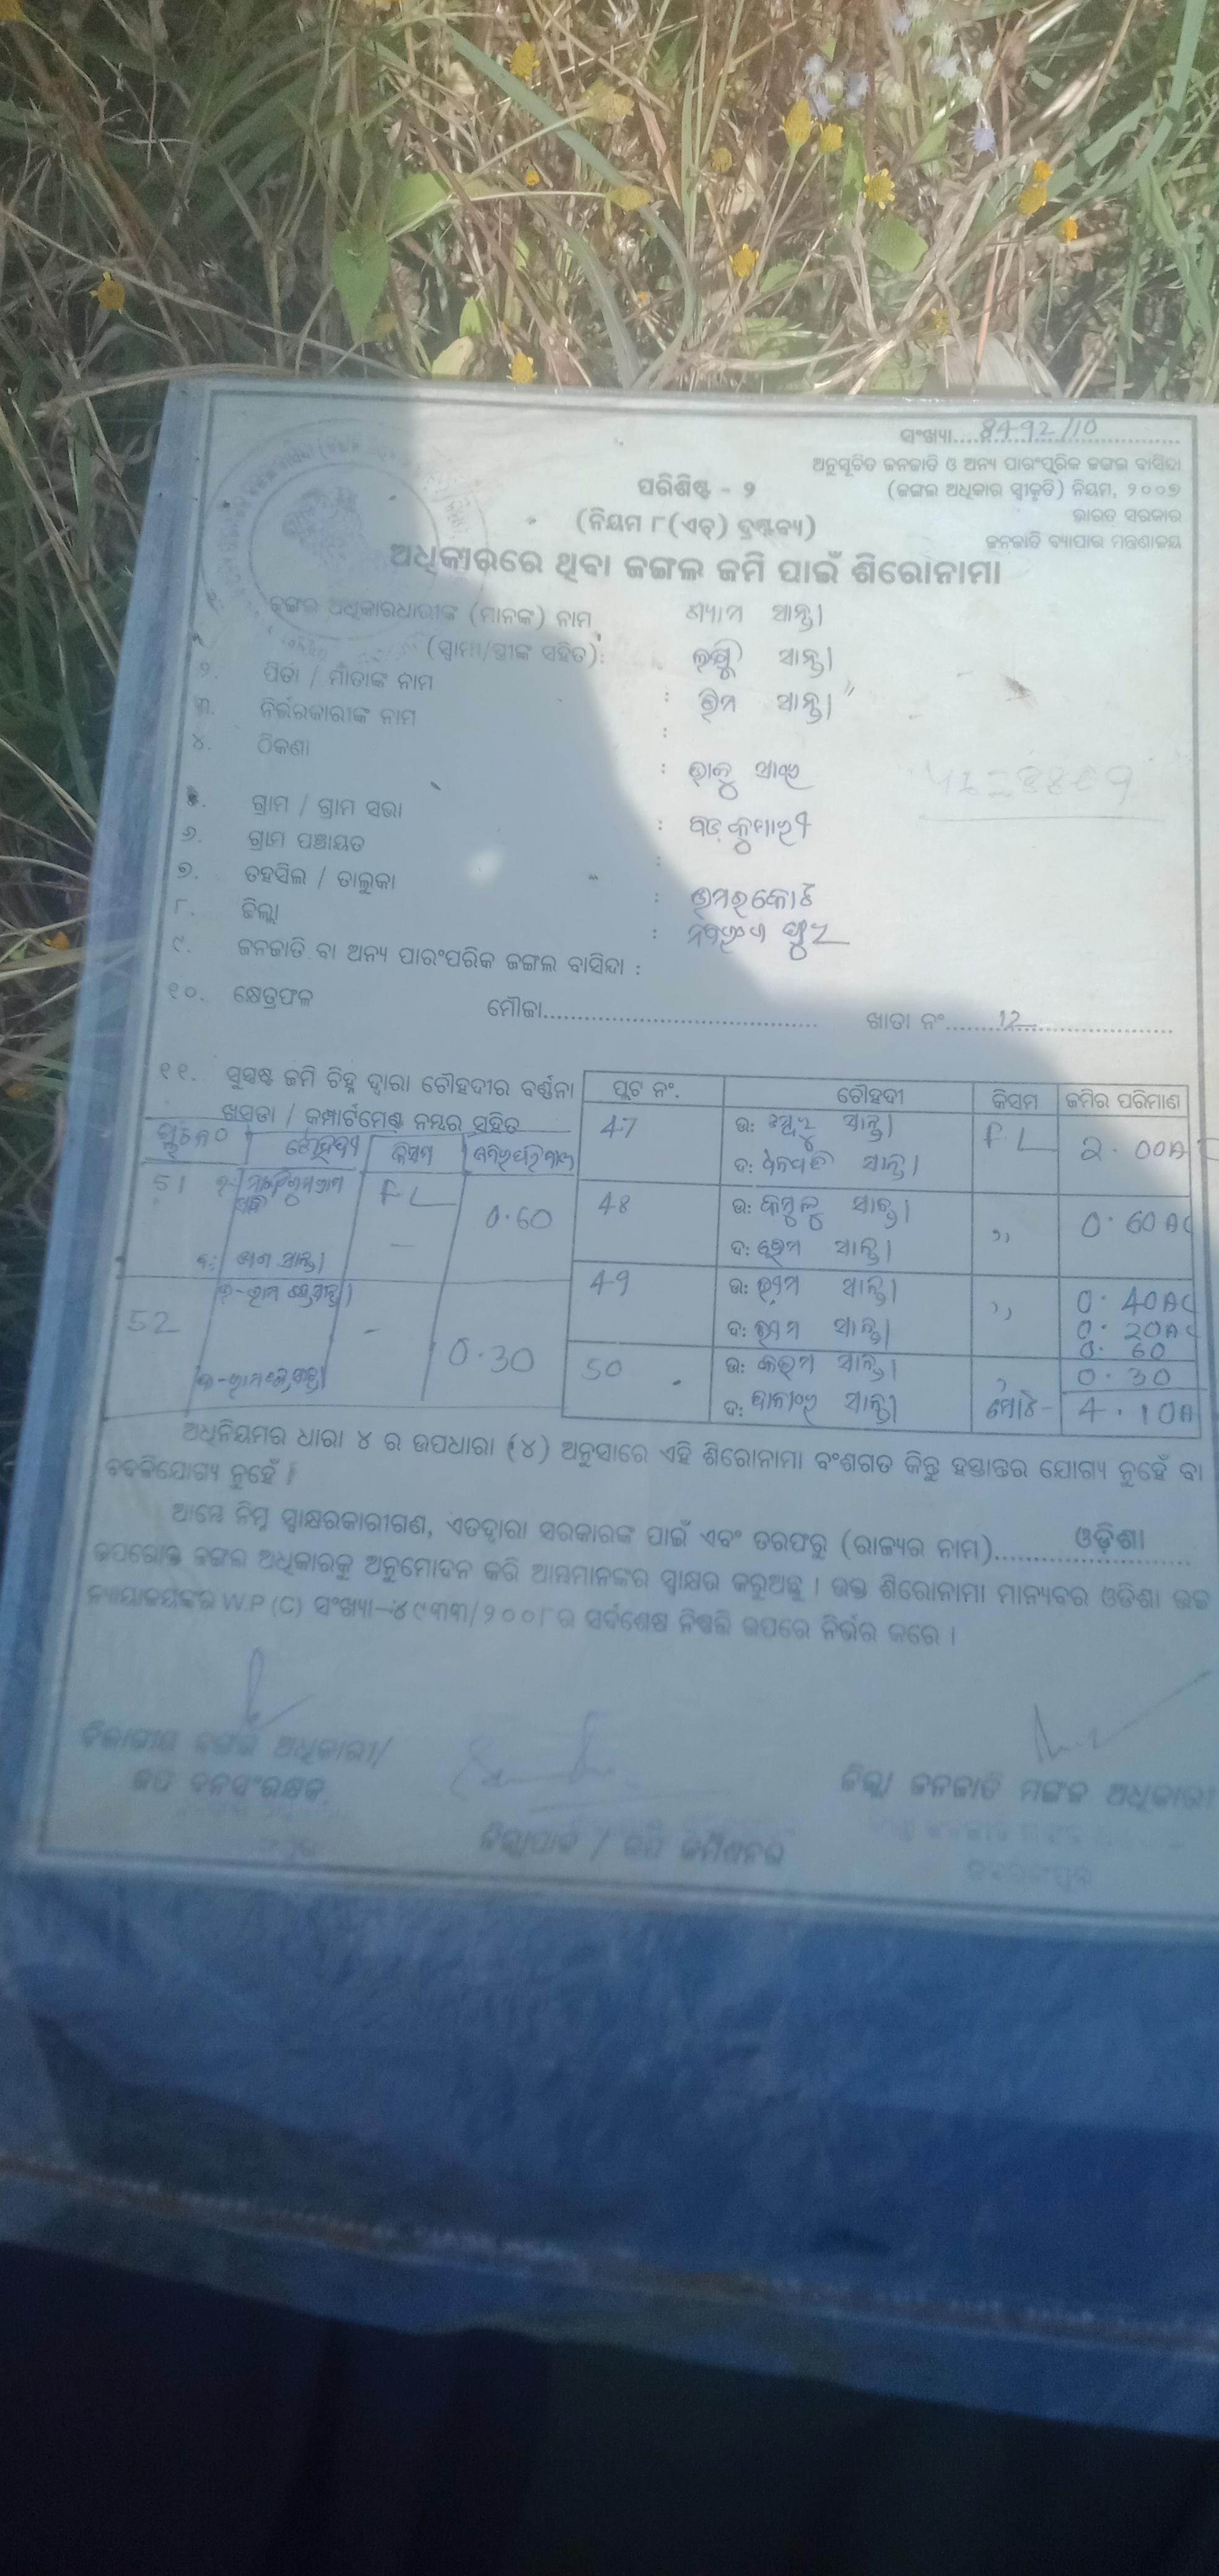 ସଂଖ୍ୟା....8492/10
ଅନୁସୂଚିତ ଜନଜାତି ଓ ଅନ୍ୟ ପାରଂପରିକ ଜଙ୍ଗଲ ବାସିନ୍ଦା
ପରିଶିଷ୍ଟ - ୨
(ଜଙ୍ଗଲ ଅଧିକାର ସ୍ୱୀକୃତି) ନିୟମ, ୨୦୦୭
(ନିୟମ ୮(ଏଚ୍) ଦ୍ରଷ୍ଟବ୍ୟ)
ଭାରତ ସରକାର
ଜନଜାତି ବ୍ୟାପାର ମନ୍ତ୍ରଣାଳୟ
ଅଧିକାରରେ ଥିବା ଜଙ୍ଗଲ ଜମି ପାଇଁ ଶିରୋନାମା
୧. ଜଙ୍ଗଲ ଅଧିକାରଧାରୀଙ୍କ (ମାନଙ୍କ) ନାମ ଶ୍ୟାମ ସାନ୍ତା
(ସ୍ୱାମୀ/ସ୍ତ୍ରୀଙ୍କ ସହିତ): ସାନ୍ତା
୨. ପିତା / ମାତାଙ୍କ ନାମ : ଭିମ ସାନ୍ତା
୩. ନିର୍ଭରକାରୀଙ୍କ ନାମ :
୪. ଠିକଣା :
୫. ଗ୍ରାମ / ଗ୍ରାମ ସଭା :
୬. ଗ୍ରାମ ପଞ୍ଚାୟତ : ବଡ଼କୁମାରୀ
୭. ତହସିଲ / ତାଲୁକା : ଉମରକୋଟ
୮. ଜିଲ୍ଲା : ନବରଂଗପୁର
୯. ଜନଜାତି ବା ଅନ୍ୟ ପାରଂପରିକ ଜଙ୍ଗଲ ବାସିନ୍ଦା :
୧୦. କ୍ଷେତ୍ରଫଳ ମୌଜା.......... ଖାତା ନଂ.......12
୧୧. ସୁସ୍ପଷ୍ଟ ଜମି ଚିହ୍ନ ଦ୍ୱାରା ଚୌହଦୀର ବର୍ଣ୍ଣନା
ଖସଡା / କମ୍ପାର୍ଟମେଣ୍ଟ ନମ୍ବର ସହିତ
ପ୍ଲଟ ନଂ. ଚୌହଦୀ କିସମ ଜମିର ପରିମାଣ
47 ଉ: ସାନ୍ତା FL 2.00A
ଦ: ଧନପତି ସାନ୍ତା
48 ଉ: ସାନ୍ତା ,, 0.60 AC
ଦ: ଭିମ ସାନ୍ତା
49 ଉ: ଭିମ ସାନ୍ତା ,, 0.40AC
ଦ: ଭିମ ସାନ୍ତା 0.20AC
0.60
50 ଉ: କରମ ସାନ୍ତା 0.30
ଦ: ସାନ୍ତା ମୋଟ- 4.10A
ପ୍ଲଟନଂ ଚୌହଦ୍ଦୀ କିସମ ଜମିରପରିମାଣ
51 FL 0.60
ସାନ୍ତା
52 - 0.30
ଅଧିନିୟମର ଧାରା ୪ ର ଉପଧାରା (୪) ଅନୁସାରେ ଏହି ଶିରୋନାମା ବଂଶଗତ କିନ୍ତୁ ହସ୍ତାନ୍ତର ଯୋଗ୍ୟ ନୁହେଁ ବା
ବଦଳିଯୋଗ୍ୟ ନୁହେଁ ।
ଆମ୍ଭେ ନିମ୍ନ ସ୍ୱାକ୍ଷରକାରୀଗଣ, ଏତଦ୍ୱାରା ସରକାରଙ୍କ ପାଇଁ ଏବଂ ତରଫରୁ (ରାଜ୍ୟର ନାମ)......ଓଡ଼ିଶା
ଉପରୋକ୍ତ ଜଙ୍ଗଲ ଅଧିକାରକୁ ଅନୁମୋଦନ କରି ଆମ୍ଭମାନଙ୍କର ସ୍ୱାକ୍ଷର କରୁଅଛୁ । ଉକ୍ତ ଶିରୋନାମା ମାନ୍ୟବର ଓଡିଶା ଉଚ୍ଚ
ନ୍ୟାୟାଳୟଙ୍କର W.P (C) ସଂଖ୍ୟା-୪୯୩୩/୨୦୦୮ର ସର୍ବଶେଷ ନିଷ୍ପତ୍ତି ଉପରେ ନିର୍ଭର କରେ ।
ବିଭାଗୀୟ ଜଙ୍ଗଲ ଅଧିକାରୀ/
ଉପ ବନସଂରକ୍ଷକ
ଜିଲ୍ଲାପାଳ / ଉପ କମିଶନର
ଜିଲ୍ଲା ଜନଜାତି ମଙ୍ଗଳ ଅଧିକାରୀ